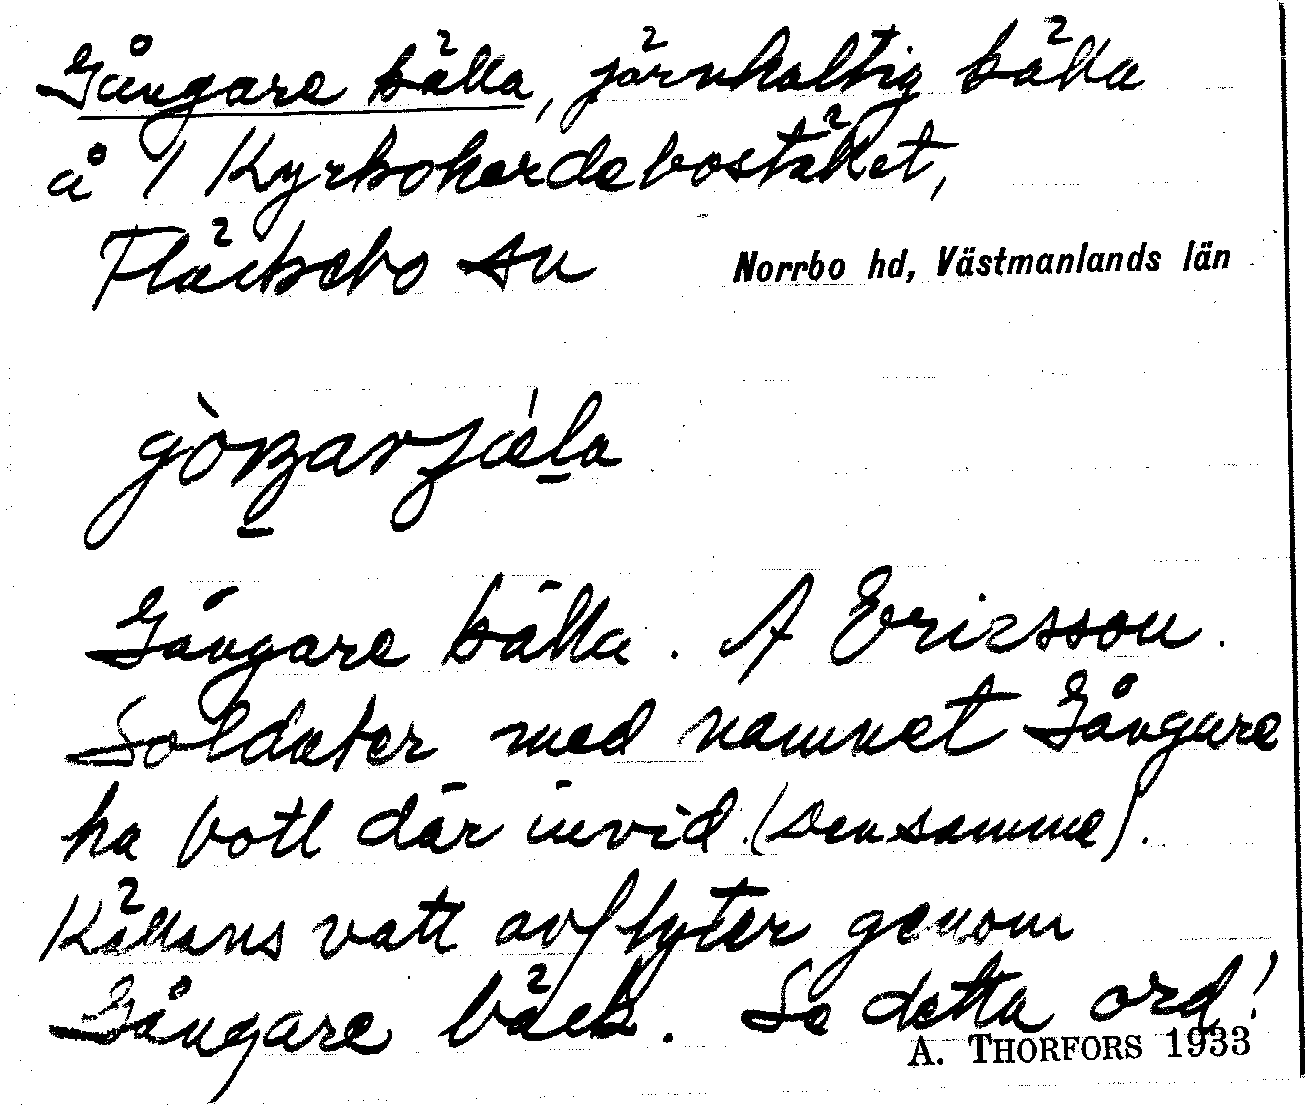 Gångare källa, järnhaltig källa
å 1 Kyrkoherdebostället,
Fläckebo sn Norrbo hd, Västmanlands län
Gångare källa. A Ericsson.
Soldater med namnet Gångare
ha bott där invid. (Densamme).
Källans vatt avflyter genom
Gångare bäck. Se detta ord!
A. THORFORS 1933